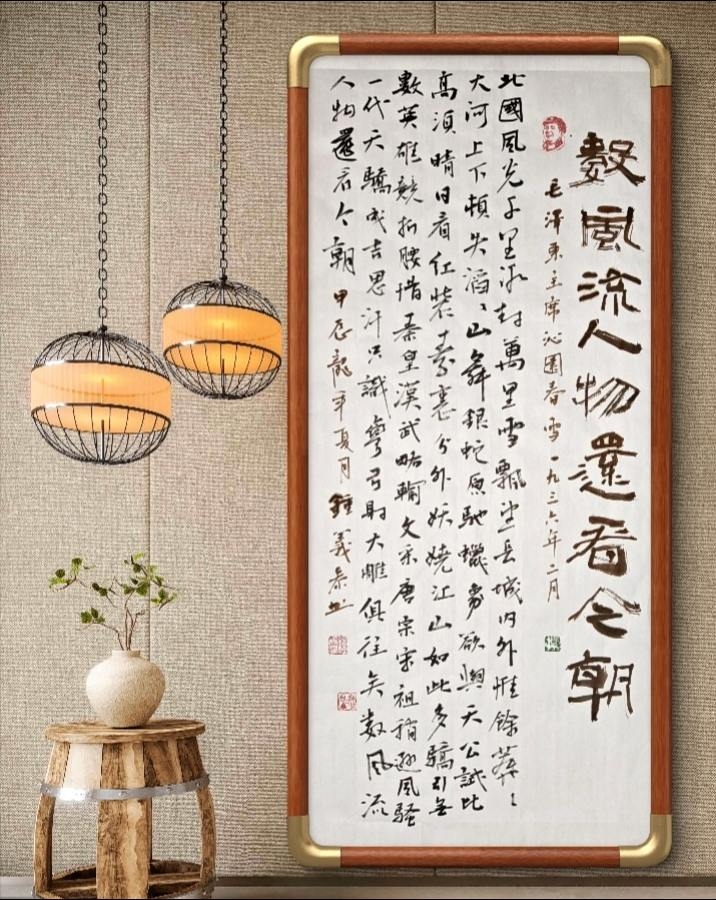 數風流人物還看今朝
毛澤東主席沁園春雪一九三六年二月
北國風光千里冰封萬里雪飄望長城內外惟餘莽〻
大河上下頓失滔〻山舞銀蛇原馳蠟象欲與天公試比
高須晴日看紅裝素裹分外妖嬈江山如此多驕引無
數英雄競折腰惜秦皇漢武略輸文采唐宗宋祖稍遜風騷
一代天驕成吉思汗只識彎弓射大雕俱往矣數風流
人物還看今朝甲辰龍年夏月鍾義